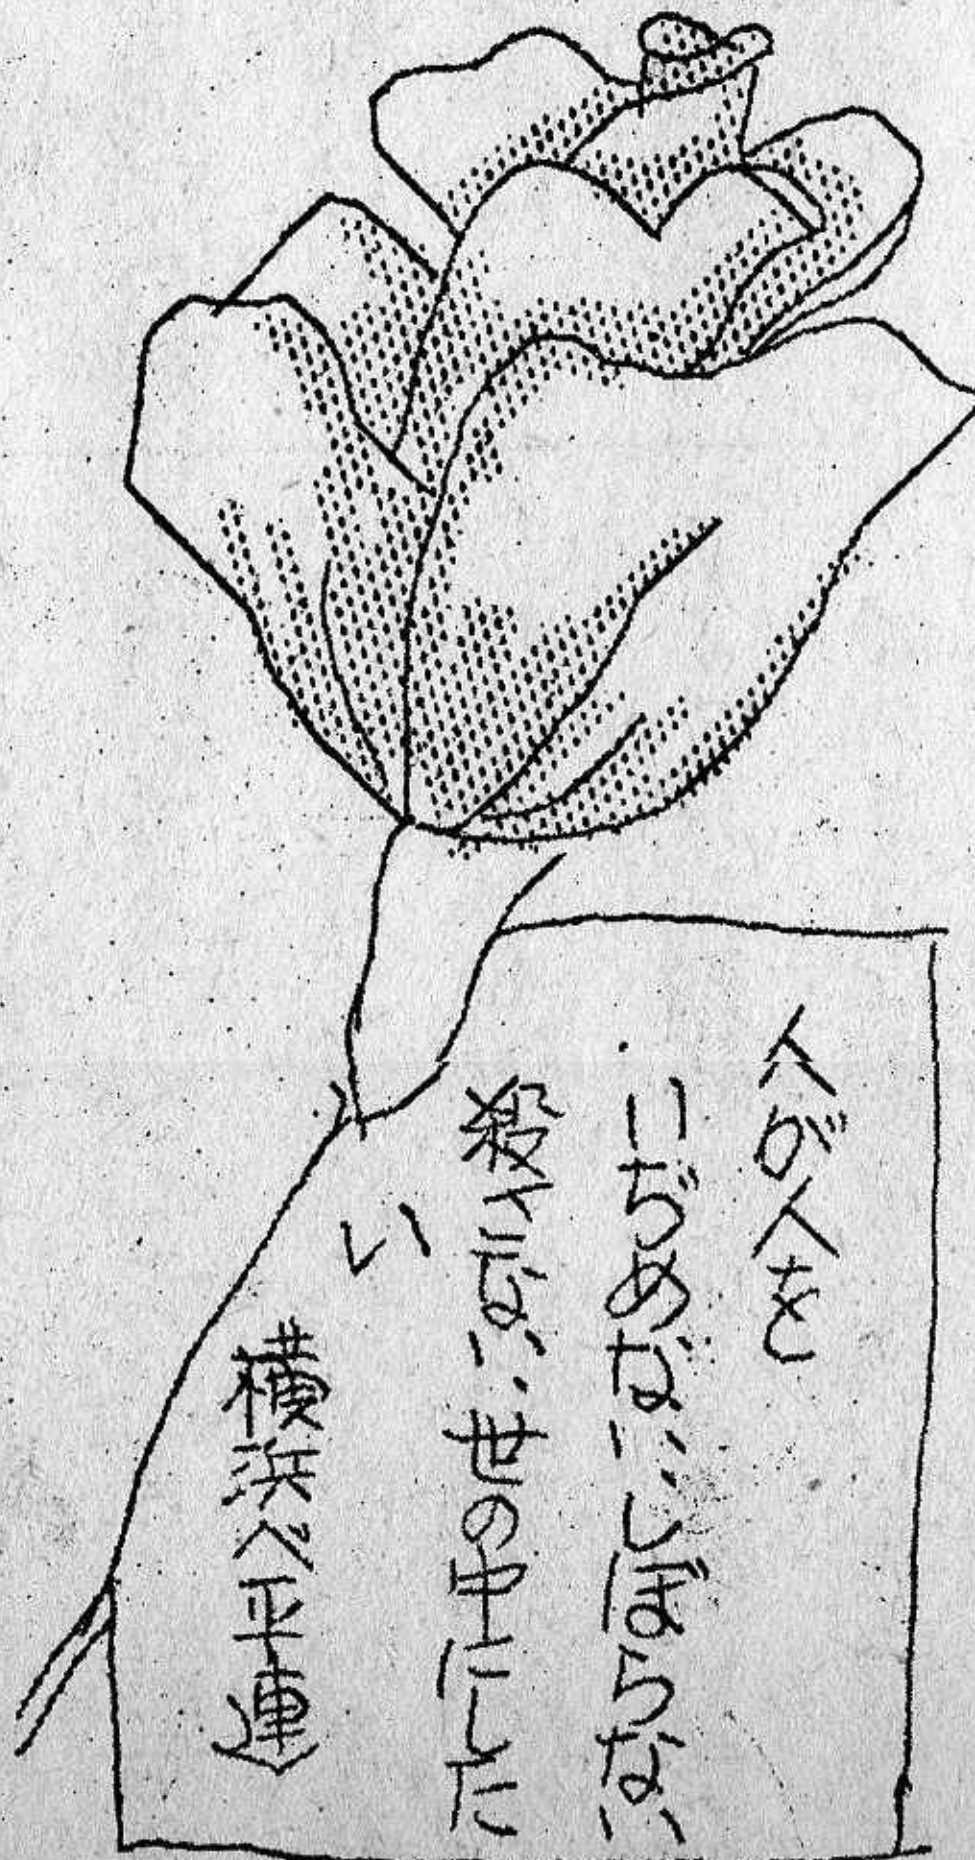 人が人を
いぢめない、しばらない
殺さない、世の中にした
い
横浜ベ平連